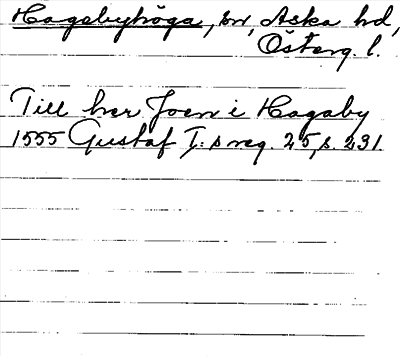 Hagebyhöga, sn, Aska hd,
Österg. l.
Till herr Joen i Hageby
1555 Gustaf I:s reg. 25, s. 231.